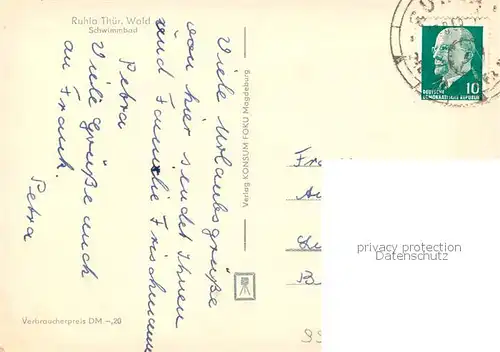 Ruhla Thür. Wald
Schwimmbad
Viele Urlaubsgrüße
von hier sendet Ihnen
und Familie Frischmann
Petra
Viele Grüße auch
an Frank.
Petra
Verlag KONSUM FOKU Magdeburg
Verbraucherpreis DM -,20
10
DEUTSCHE
DEMOKRATISCHE REPUBLIK
Fr
B
privacy protection
Datenschutz